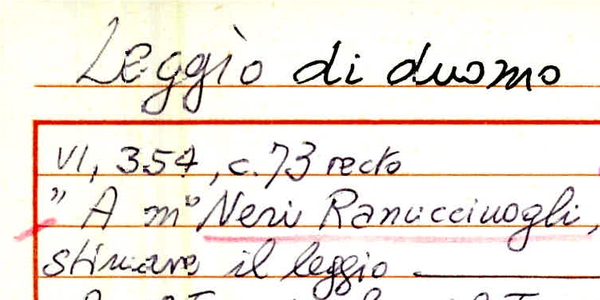 Leggìo di duomo
VI, 354, c. 73 recto
" A m° Neri Ranuccinogli,
stimare il leggio